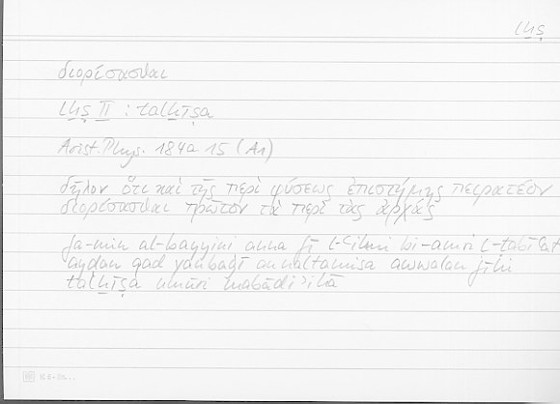 lḫṣ
διορίσασθαι
lḫṣ II : talḫīṣa
Arist. Phys. 184a 15 (A1)
δῆλον ὅτι καὶ τῆς περὶ φύσεως ἐπιστήμης πειρατέον
διορίσασθαι πρῶτον τὰ περὶ τὰς ἀρχάς
fa-min al-bayyini anna fī l-ʿilmi bi-amri l-ṭabīʿati
ayḍan qad yanbaġī an naltamisa awwalan fīhi
talḫīṣa umūri mabādiʾihā